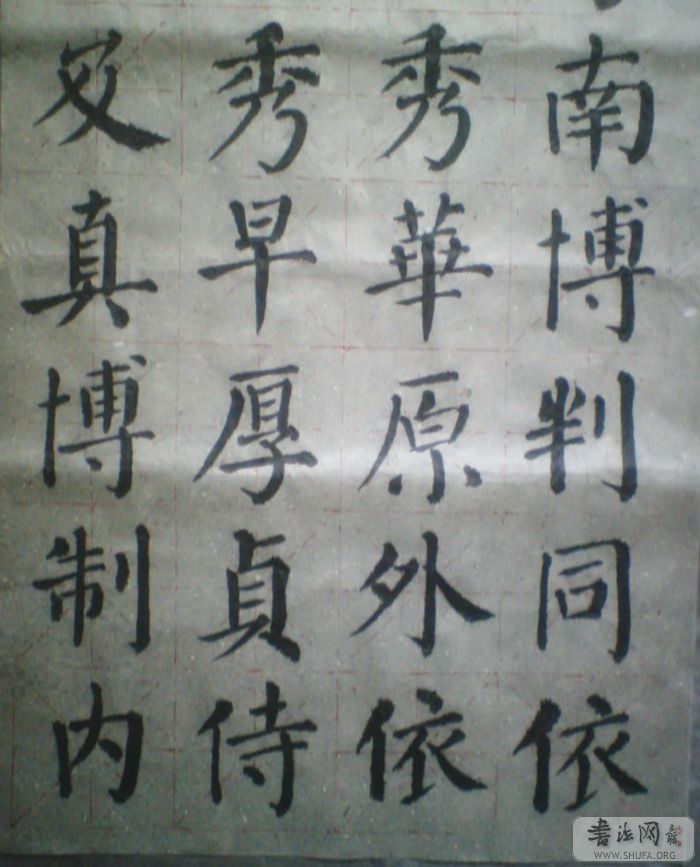 南博判同依
秀華原外依
秀早厚貞侍
真博制内
書法网
WWW.SHUFA.ORG